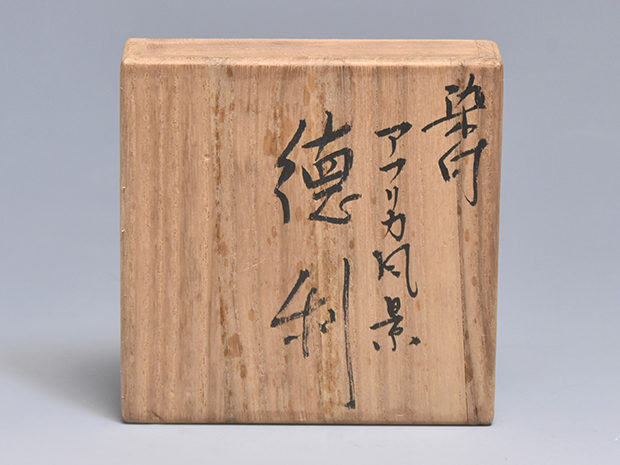 染付
アフリカ風景
德利